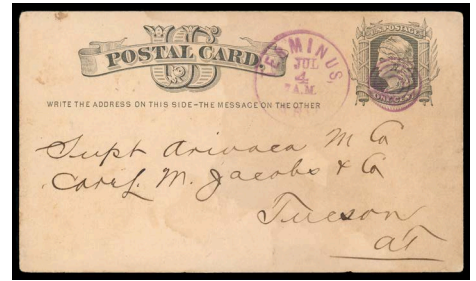 US
POSTAL CARD
U.S. POSTAGE
ONE CENT
TERMINUS,
JUL
4
7 A.M.
WRITE THE ADDRESS ON THIS SIDE-THE MESSAGE ON THE OTHER
Supt Arivaca M Co
Care L. M. Jacobs & Co
Tucson
AT